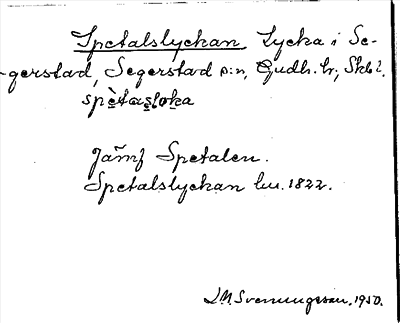 Spetalslyckan Lycka i Se-
gerstad, Segerstad s:n, Gudh. hr, Skbl.
spètasloka
Jämf Spetalen.
Spetalslyckan lm. 1822.
D.M. Svenungsson. 1950.